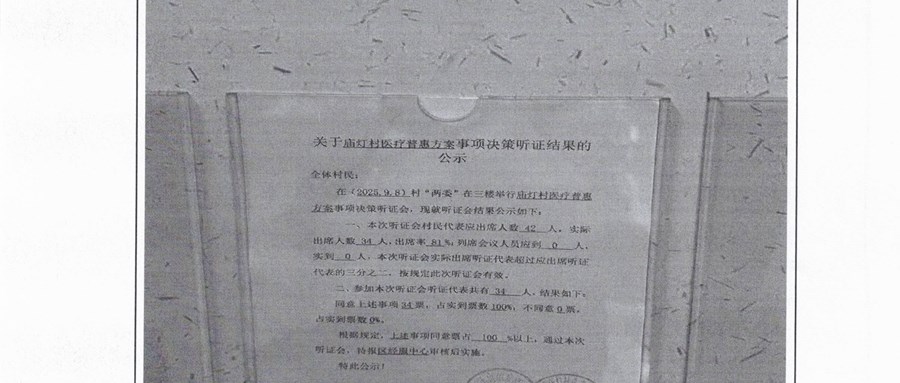 关于庙灯村医疗普惠方案事项决策听证结果的
公示
全体村民：
在（2025.9.8）村“两委”在三楼举行庙灯村医疗普惠
方案事项决策听证会，现就听证会结果公示如下：
一、本次听证会村民代表应出席人数 42 人，实际
出席人数 34 人，出席率 81%；列席会议人员应到 0 人，
实到 0 人，本次听证会实际出席听证代表超过应出席听证
代表的三分之二，按规定此次听证会有效。
二、参加本次听证会听证代表共有 34 人，结果如下：
同意上述事项 34 票，占实到票数 100%，不同意 0 票，
占实到票数 0%。
根据规定，上述事项同意票占 100 %以上，通过本次
听证会，待报区经服中心审核后实施。
特此公示！